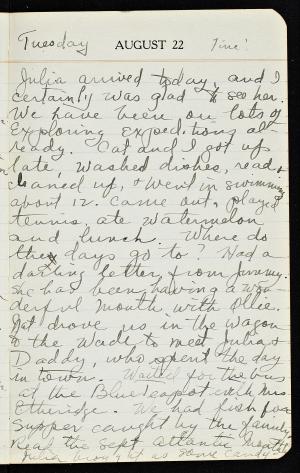 Tuesday AUGUST 22 Fine!
Julia arrived today, and I
certainly was glad to see her.
We have been on lots of
Exploring Expeditions al
ready. Cat and I got up
late, washed dishes, read,
cleaned up, & went in swimming
about 12. Came out, played
tennis ate watermelon
and lunch. Where do
they days go to? Had a
darling letter from Jimmy.
She has been having a won
derful month with Ollie.
Dot drove us in the wagon
to the Wade to meet Julia &
Daddy, who spent the day
in town. Waited for the bus
at the Blue Teapot with Mrs
Etheridge. We had fish for
supper caught by the family
Read the Sept Atlantic Monthly
Julia brought us some candy